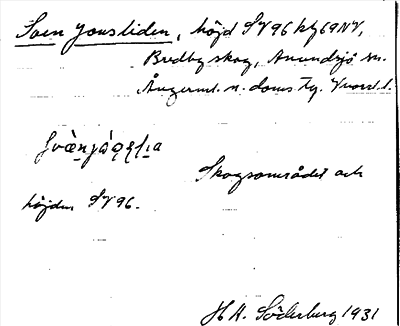 Sven Jonsliden, höjd SV96 kbl69NV,
Bredbyskog, Anundsjö sn.
Ångerml. n. doms. tg. Vnorrl. l.
Skogsområdet och
höjden SV96.
H A. Söderberg 1931